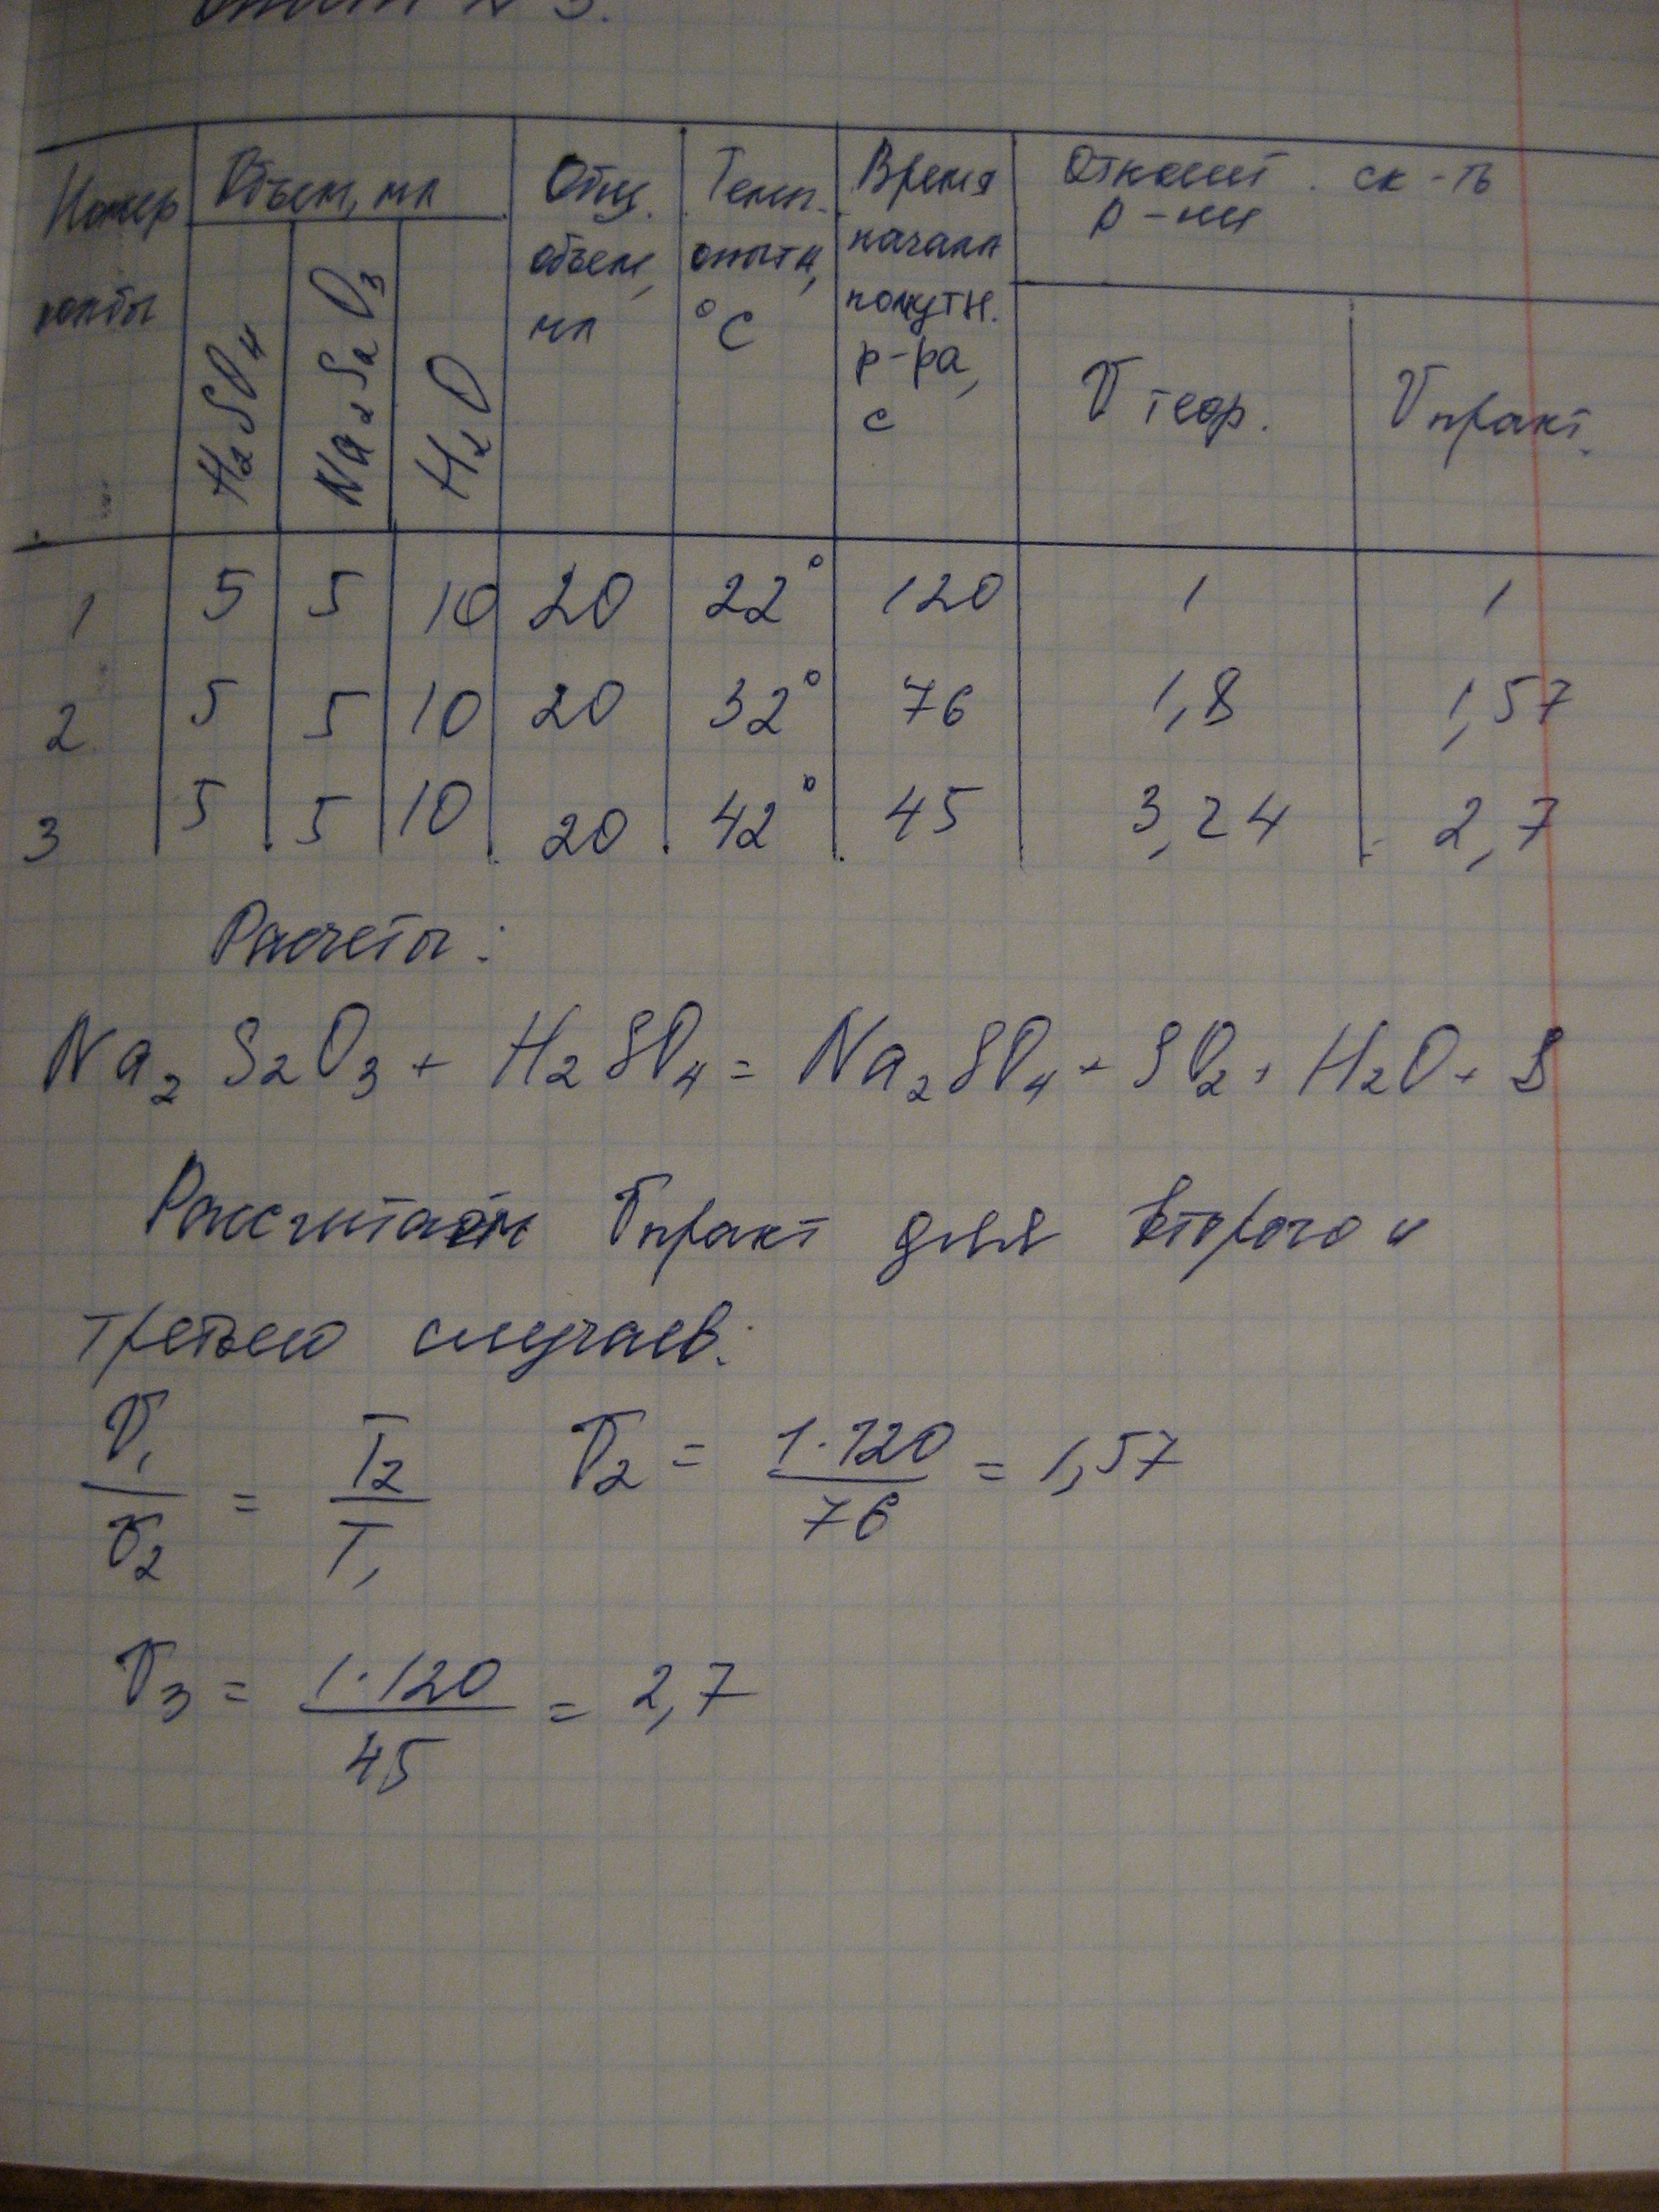 № 3.
Номер колбы | Объем, мл | Общ. объем, мл | Темп. опыта, °C | Время начала помутн. р-ра, с | Относит. ск-ть р-ии
H₂SO₄ | Na₂S₂O₃ | H₂O | V теор. | V практ.
1 | 5 | 5 | 10 | 20 | 22° | 120 | 1 | 1
2 | 5 | 5 | 10 | 20 | 32° | 76 | 1,8 | 1,57
3 | 5 | 5 | 10 | 20 | 42° | 45 | 3,24 | 2,7
Расчеты:
Na₂S₂O₃ + H₂SO₄ = Na₂SO₄ + SO₂ + H₂O + S
Рассчитаем Vпракт для второго и
третьего случаев:
V₁/V₂ = T₂/T₁ V₂ = 1·120/76 = 1,57
V₃ = 1·120/45 = 2,7